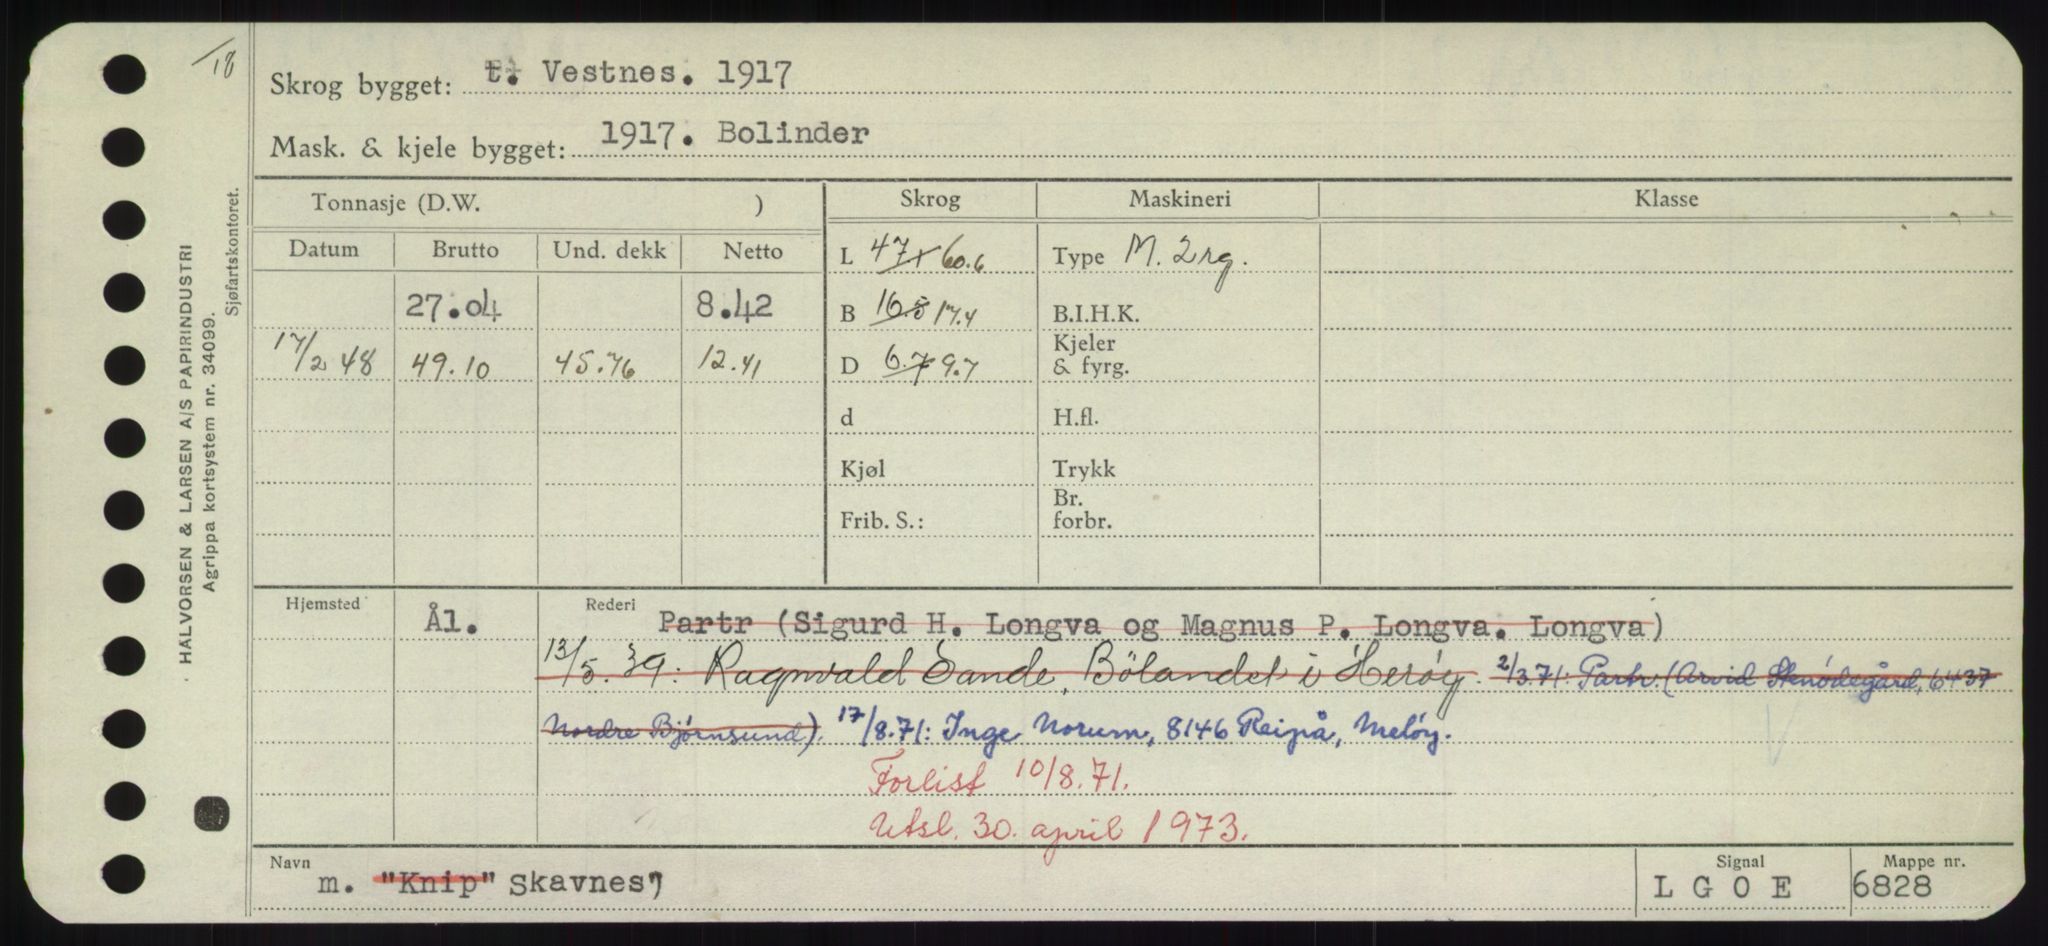 18
Skrog bygget: t. Vestnes. 1917
Mask. & kjele bygget: 1917. Bolinder
HALVORSEN & LARSEN A/S PAPIRINDUSTRI
Agrippa kortsystem nr. 34099.
Sjøfartskontoret.
Tonnasje (D.W. ) Skrog Maskineri Klasse
Datum Brutto Und. dekk Netto
L 47 60.6 Type M. 2rg.
27.04 8.42 B 16.5 17.4 B.I.H.K.
17/2 48 49.10 45.76 12.41 D 6.7 9.7 Kjeler & fyrg.
d H.fl.
Kjøl Trykk
Frib. S.: Br. forbr.
Hjemsted Ål. Rederi Partr (Sigurd H. Longva og Magnus P. Longva. Longva)
13/5.39: Ragnvald Sande, Bölandet i Herøy. 2/3.71: Partr. (Arvid Sknødegård, 6437
Nordre Bjørnsund). 17/8.71: Inge Norum, 8146 Reipå, Meløy.
Forlist 10/8.71.
Utsl. 30. april 1973.
Navn m. "Knip" Skavnes" Signal L G O E Mappe nr. 6828